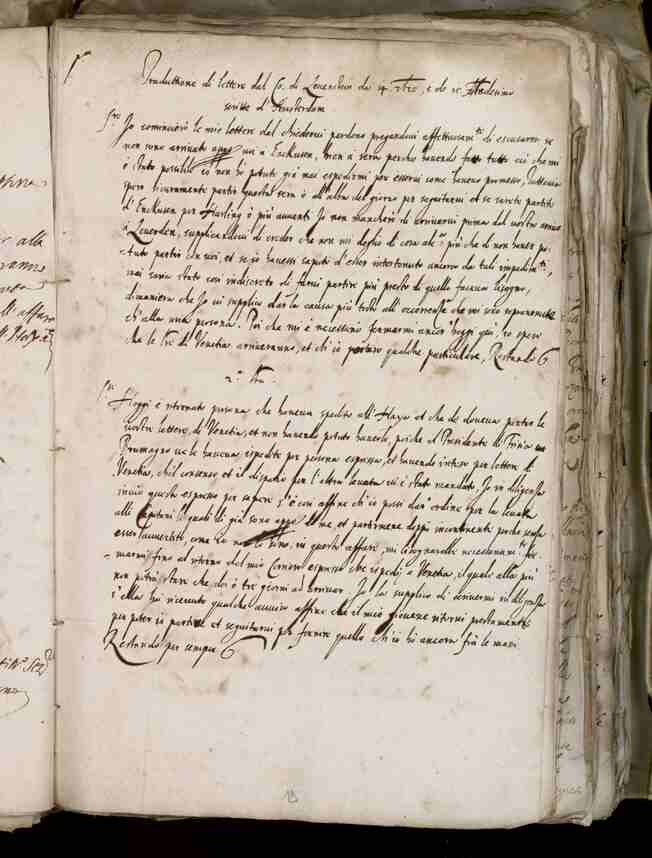 Traduttione di lettere del Co. di Levenstein de 14 xbre, e de 15 Medesimo
scritte d'Amsterdam
Sre
Io cominciarò le mie lettere dal chiedervi perdono pregandovi affettuosamte di escusarmi se
non sono arrivato appo voi a Enckusen, non a sera perche havendo fatto tutto ciò che mi
è stato possibile io non hò potuto già mai espedirmi per esservi come havevo promesso, tuttavia
spero sicuramente partir questa sera ò all'alba del giorno per seguitarvi et se sarete partito
d'Enckusen per Harling ò più avanti Io non mancherò di trovarvi prima del vostro arrivo
a Leverden, supplicandovi di creder che non mi doglio di cosa alca più che di non haver po-
tuto partir con voi, et se io havessi saputo d'esser intertenuto ancora da tali impedimti,
mai saria stato così indiscreto di farvi partire più presto di quello faceva bisogno,
dimaniera che Io vi supplico dar la causa più tosto all'occorrenze che mi sono sopravenute
ch'alla mia persona. Poi che mi è necessario fermarmi ancor' hoggi qui, io spero
che le lre di Venetia arriveranno, et ch'io portarò qualche particulare, Restando
2a lra.
Sre
Hoggi è ritornato persona che haveva spedito all'Haya et che doveva portar le
vostre lettere di Venetia, et non havendo potuto haverle, poiche il Presidente
Brumagno ve le haveva espedite per persona espressa, et havendo inteso per lettere di
Venetia, ch'il consenso et il dispaccio per l'altra levata vi è stato mandato, Io in diligenza
invio questo espresso per sapere s'è così affine ch'io possi dar ordine per la levata
alli Capitani li quali di già sono appo di me et partirmene doppo incontinente perche senza
esser, in questo affare, mi bisognarebbe necessariamte fer-
marmi fino al ritorno del mio Corriero espresso che io spedij a Venetia, il quale alla più
non potrà stare che doi ò tre giorni ad arrivar. Io la supplico di scrivermi in diligenza
s'ella hà ricevuto qualche avviso affine che il mio giovane ritorni prestamente
per poter io partire et seguitarvi per fornire quello ch'io hò ancora frà le mani
Restando per sempre